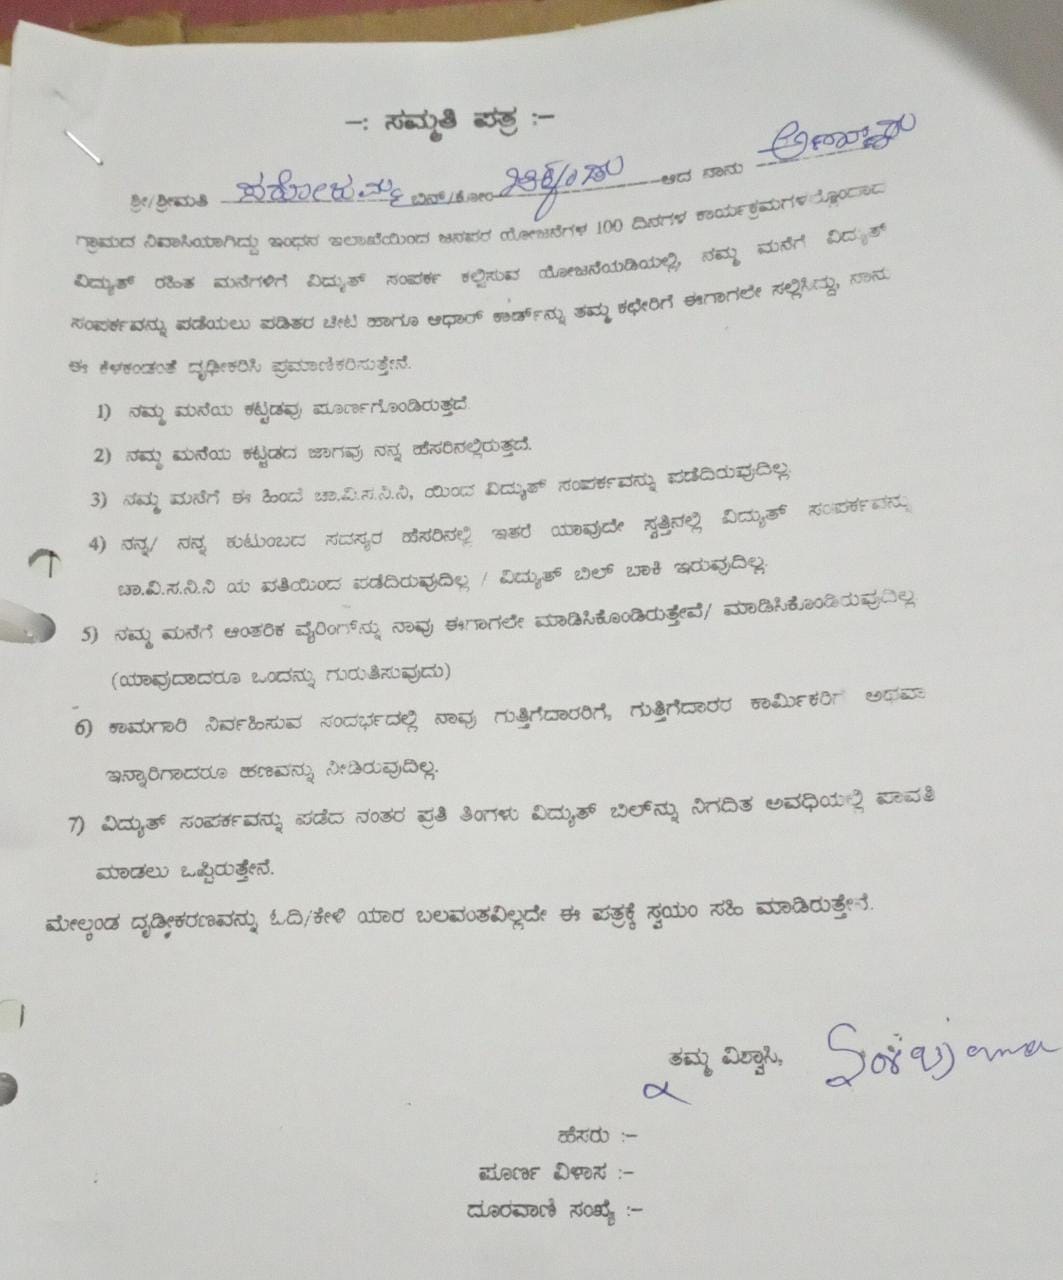 –: ಸಮ್ಮತಿ ಪತ್ರ :–
ಶ್ರೀ/ಶ್ರೀಮತಿ ಬಿನ್/ಕೋಂ ಆದ ನಾನು
ಗ್ರಾಮದ ನಿವಾಸಿಯಾಗಿದ್ದು ಇಂಧನ ಇಲಾಖೆಯಿಂದ ಜನಪರ ಯೋಜನೆಗಳ 100 ದಿನಗಳ ಕಾರ್ಯಕ್ರಮಗಳಲ್ಲೊಂದಾದ
ವಿದ್ಯುತ್ ರಹಿತ ಮನೆಗಳಿಗೆ ವಿದ್ಯುತ್ ಸಂಪರ್ಕ ಕಲ್ಪಿಸುವ ಯೋಜನೆಯಡಿಯಲ್ಲಿ, ನಮ್ಮ ಮನೆಗೆ ವಿದ್ಯುತ್
ಸಂಪರ್ಕವನ್ನು ಪಡೆಯಲು ಪಡಿತರ ಚೀಟಿ ಹಾಗೂ ಆಧಾರ್ ಕಾರ್ಡ್‌ನ್ನು ತಮ್ಮ ಕಛೇರಿಗೆ ಈಗಾಗಲೇ ಸಲ್ಲಿಸಿದ್ದು, ನಾನು
ಈ ಕೆಳಕಂಡಂತೆ ದೃಢೀಕರಿಸಿ ಪ್ರಮಾಣಿಕರಿಸುತ್ತೇನೆ.
1) ನಮ್ಮ ಮನೆಯ ಕಟ್ಟಡವು ಪೂರ್ಣಗೊಂಡಿರುತ್ತದೆ.
2) ನಮ್ಮ ಮನೆಯ ಕಟ್ಟಡದ ಜಾಗವು ನನ್ನ ಹೆಸರಿನಲ್ಲಿರುತ್ತದೆ.
3) ನಮ್ಮ ಮನೆಗೆ ಈ ಹಿಂದೆ ಚಾ.ವಿ.ಸ.ನಿ.ನಿ, ಯಿಂದ ವಿದ್ಯುತ್ ಸಂಪರ್ಕವನ್ನು ಪಡೆದಿರುವುದಿಲ್ಲ.
4) ನನ್ನ/ ನನ್ನ ಕುಟುಂಬದ ಸದಸ್ಯರ ಹೆಸರಿನಲ್ಲಿ ಇತರೆ ಯಾವುದೇ ಸ್ವತ್ತಿನಲ್ಲಿ ವಿದ್ಯುತ್ ಸಂಪರ್ಕವನ್ನು
ಚಾ.ವಿ.ಸ.ನಿ.ನಿ ಯ ವತಿಯಿಂದ ಪಡೆದಿರುವುದಿಲ್ಲ / ವಿದ್ಯುತ್ ಬಿಲ್ ಬಾಕಿ ಇರುವುದಿಲ್ಲ.
5) ನಮ್ಮ ಮನೆಗೆ ಆಂತರಿಕ ವೈರಿಂಗ್‌ನ್ನು ನಾವು ಈಗಾಗಲೇ ಮಾಡಿಸಿಕೊಂಡಿರುತ್ತೇವೆ/ ಮಾಡಿಸಿಕೊಂಡಿರುವುದಿಲ್ಲ
(ಯಾವುದಾದರೂ ಒಂದನ್ನು ಗುರುತಿಸುವುದು)
6) ಕಾಮಗಾರಿ ನಿರ್ವಹಿಸುವ ಸಂದರ್ಭದಲ್ಲಿ ನಾವು ಗುತ್ತಿಗೆದಾರರಿಗೆ, ಗುತ್ತಿಗೆದಾರರ ಕಾರ್ಮಿಕರಿಗೆ ಅಥವಾ
ಇನ್ನಾರಿಗಾದರೂ ಹಣವನ್ನು ನೀಡಿರುವುದಿಲ್ಲ.
7) ವಿದ್ಯುತ್ ಸಂಪರ್ಕವನ್ನು ಪಡೆದ ನಂತರ ಪ್ರತಿ ತಿಂಗಳು ವಿದ್ಯುತ್ ಬಿಲ್‌ನ್ನು ನಿಗದಿತ ಅವಧಿಯಲ್ಲಿ ಪಾವತಿ
ಮಾಡಲು ಒಪ್ಪಿರುತ್ತೇನೆ.
ಮೇಲ್ಕಂಡ ದೃಡ್ಢೀಕರಣವನ್ನು ಓದಿ/ಕೇಳಿ ಯಾರ ಬಲವಂತವಿಲ್ಲದೇ ಈ ಪತ್ರಕ್ಕೆ ಸ್ವಯಂ ಸಹಿ ಮಾಡಿರುತ್ತೇನೆ.
ತಮ್ಮ ವಿಶ್ವಾಸಿ,
ಹೆಸರು :–
ಪೂರ್ಣ ವಿಳಾಸ :–
ದೂರವಾಣಿ ಸಂಖ್ಯೆ :–